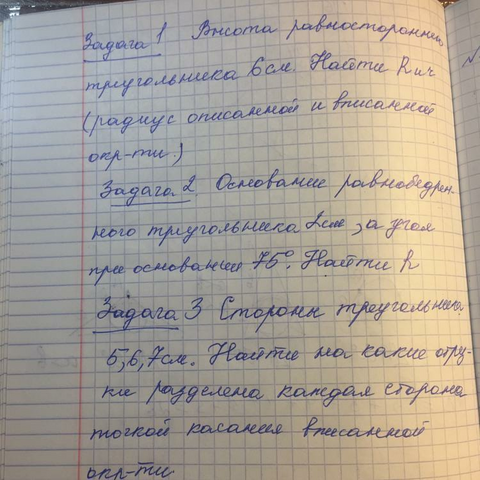 Задача 1 Высота равносторонней
треугольника 6см. Найти R и r
(радиус описанной и вписанной
окр-ти.)
Задача 2 Основание равнобедрен-
ного треугольника 2см, а угол
при основании 75°. Найти R
Задача 3 Стороны треугольника
5, 6, 7см. Найти на какие отрез-
ки разделена каждая сторона
точкой касания вписанной
окр-ти